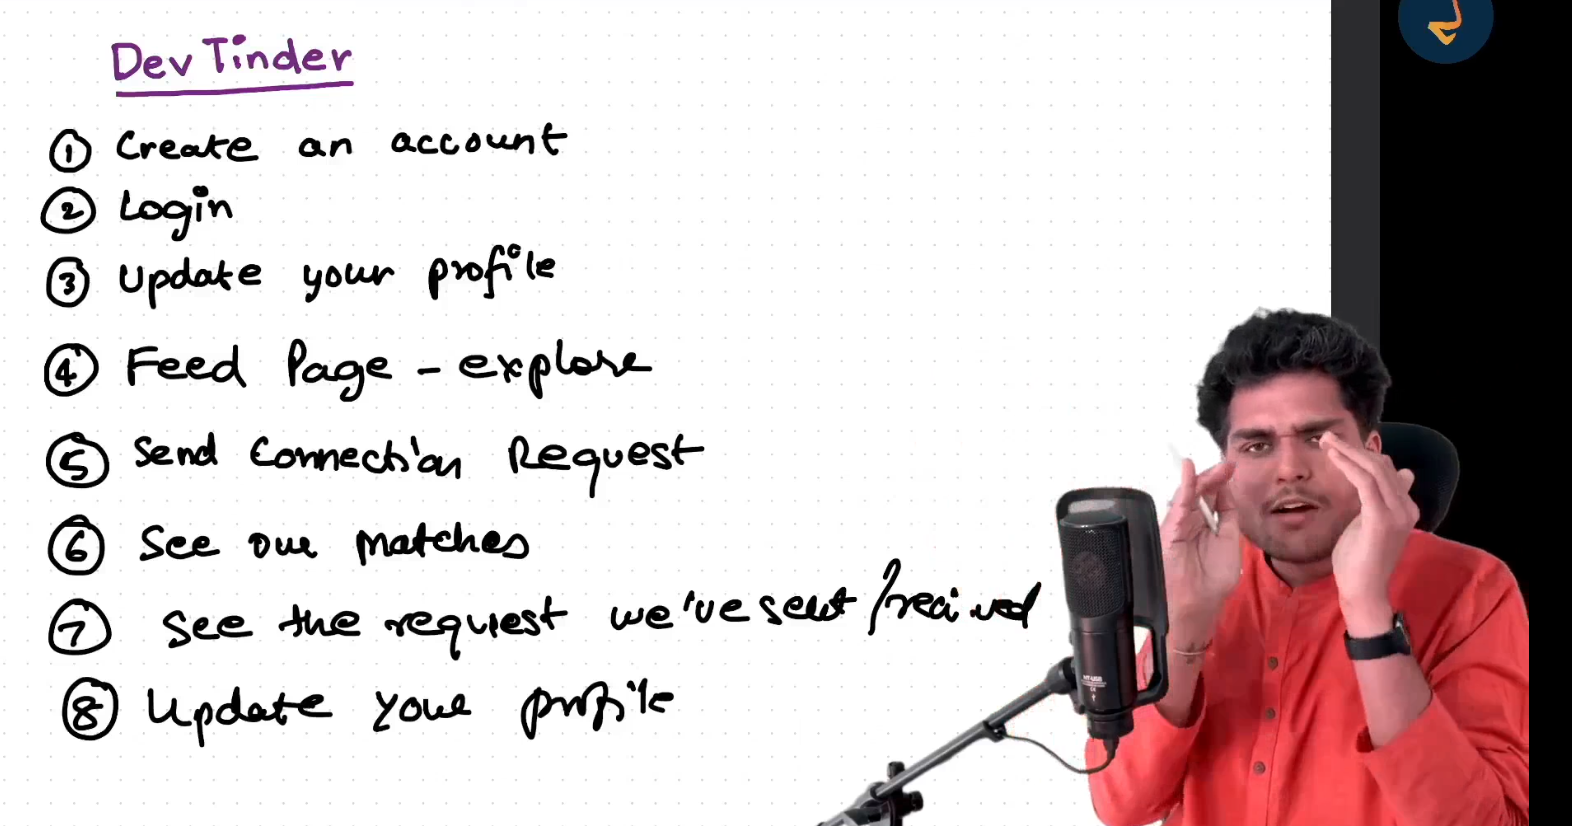 Dev Tinder
① Create an account
② Login
③ Update your profile
④ Feed Page - explore
⑤ Send Connection Request
⑥ See our matches
⑦ see the request we've sent / recived
⑧ Update your profile
NT-USB